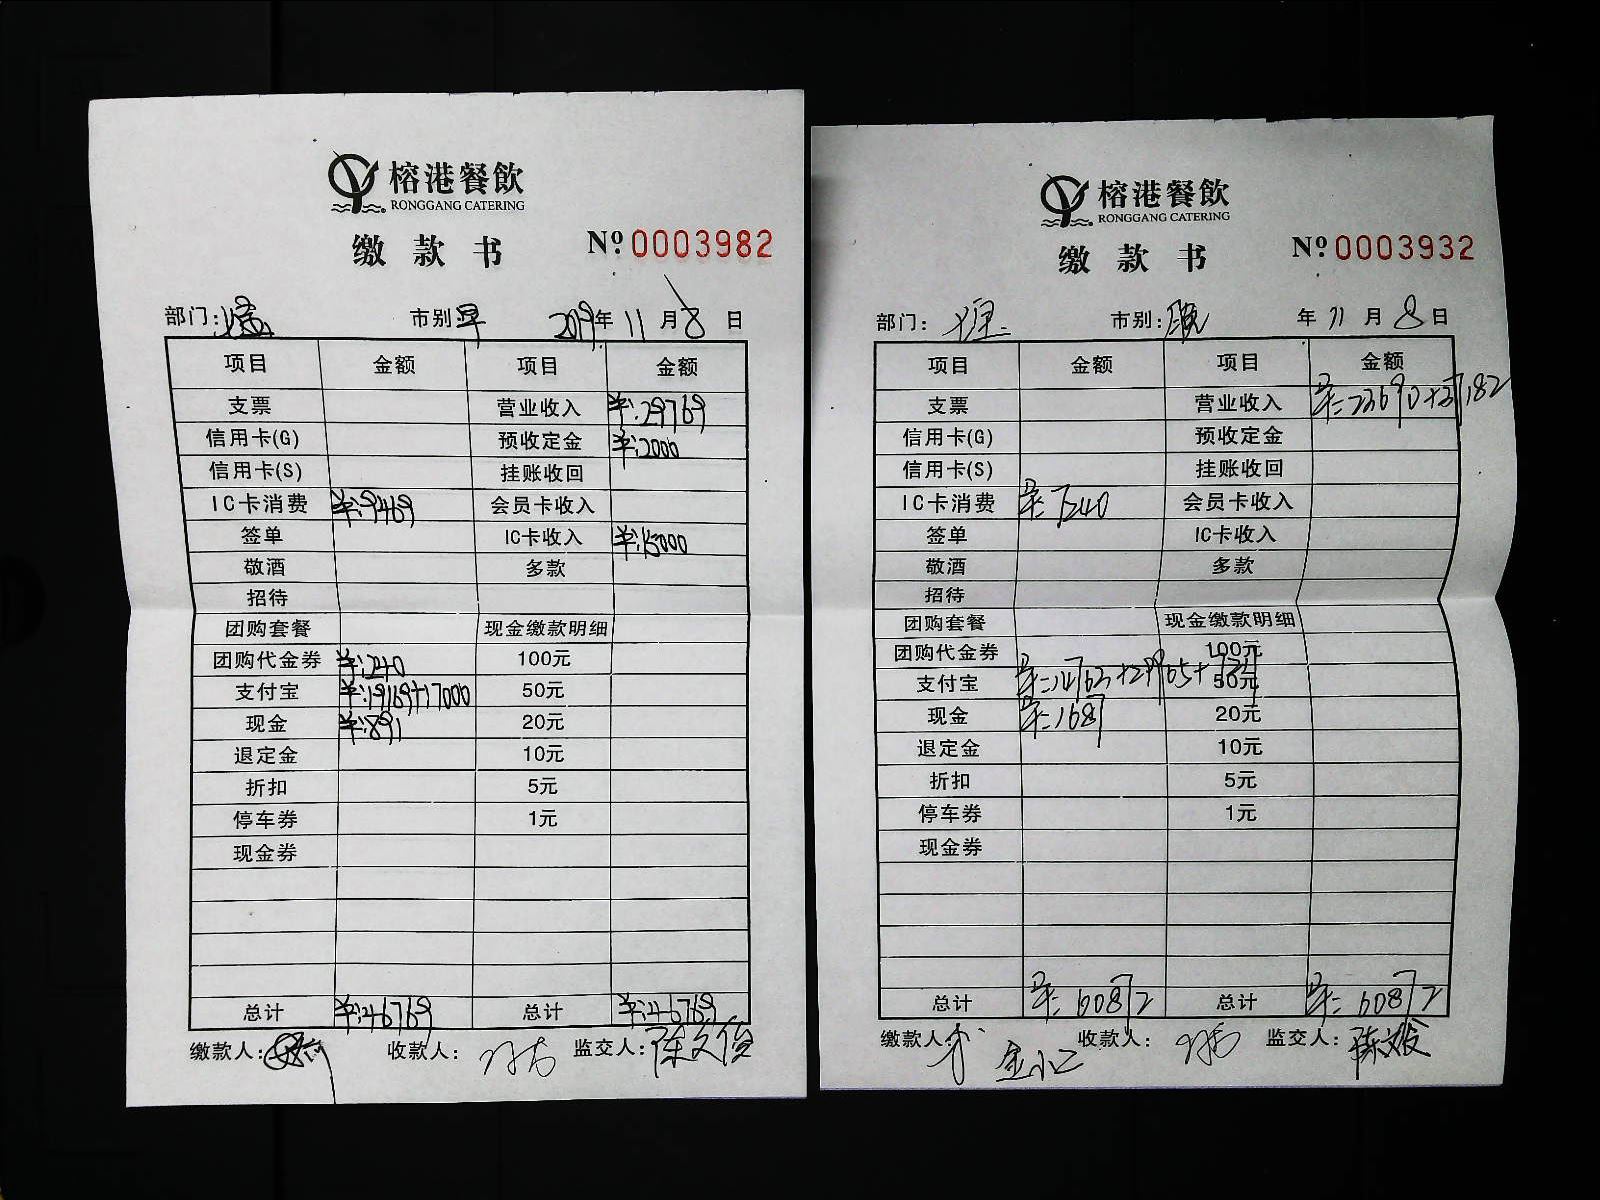 榕港餐飲
RONGGANG CATERING
缴款书
Nº 0003982
部门: 市别:早 2019年11月8日
项目 金额 项目 金额
支票 营业收入 ¥:29769
信用卡(G) 预收定金 ¥:2000
信用卡(S) 挂账收回
IC卡消费 ¥:9469 会员卡收入
签单 IC卡收入 ¥:15000
敬酒 多款
招待
团购套餐 现金缴款明细
团购代金券 ¥:240 100元
支付宝 ¥:19169+17000 50元
现金 ¥:891 20元
退定金 10元
折扣 5元
停车券 1元
现金券
总计 ¥:46769 总计 ¥:46769
缴款人: 收款人: 监交人:陈文俊
榕港餐飲
RONGGANG CATERING
缴款书
Nº 0003932
部门: 市别:晚 年11月8日
项目 金额 项目 金额
支票 营业收入 ¥:23690+37182
信用卡(G) 预收定金
信用卡(S) 挂账收回
IC卡消费 ¥:7240 会员卡收入
签单 IC卡收入
敬酒 多款
招待
团购套餐 现金缴款明细
团购代金券 100元
支付宝 50元
现金 ¥:1687 20元
退定金 10元
折扣 5元
停车券 1元
现金券
总计 ¥:60872 总计 ¥:60872
缴款人: 收款人: 监交人:陈文俊